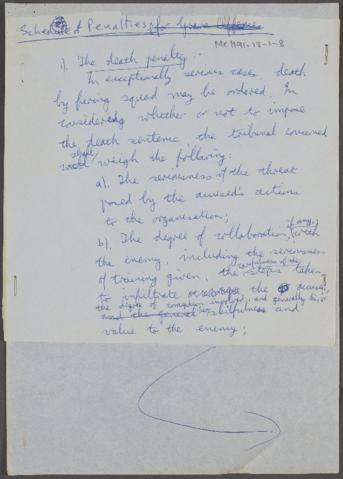 Schedule of Penalties for Grave Offences
MCH91-13-1-8
1). The death penalty.
In exceptionally serious cases, death
by firing squad may be ordered. In
considering whether or not to impose
the death sentence the tribunal concerned
shall
weigh the following:
a). The seriousness of the threat
posed by the accused's actions
to the organisation;
b). The degree of collaboration, (if any,) with
the enemy, including the seriousness
of training given, the usefulness of the steps taken
to infiltrate the accused,
the degree of corruption involved, and generally his or
and the general skilfulness and
value to the enemy;